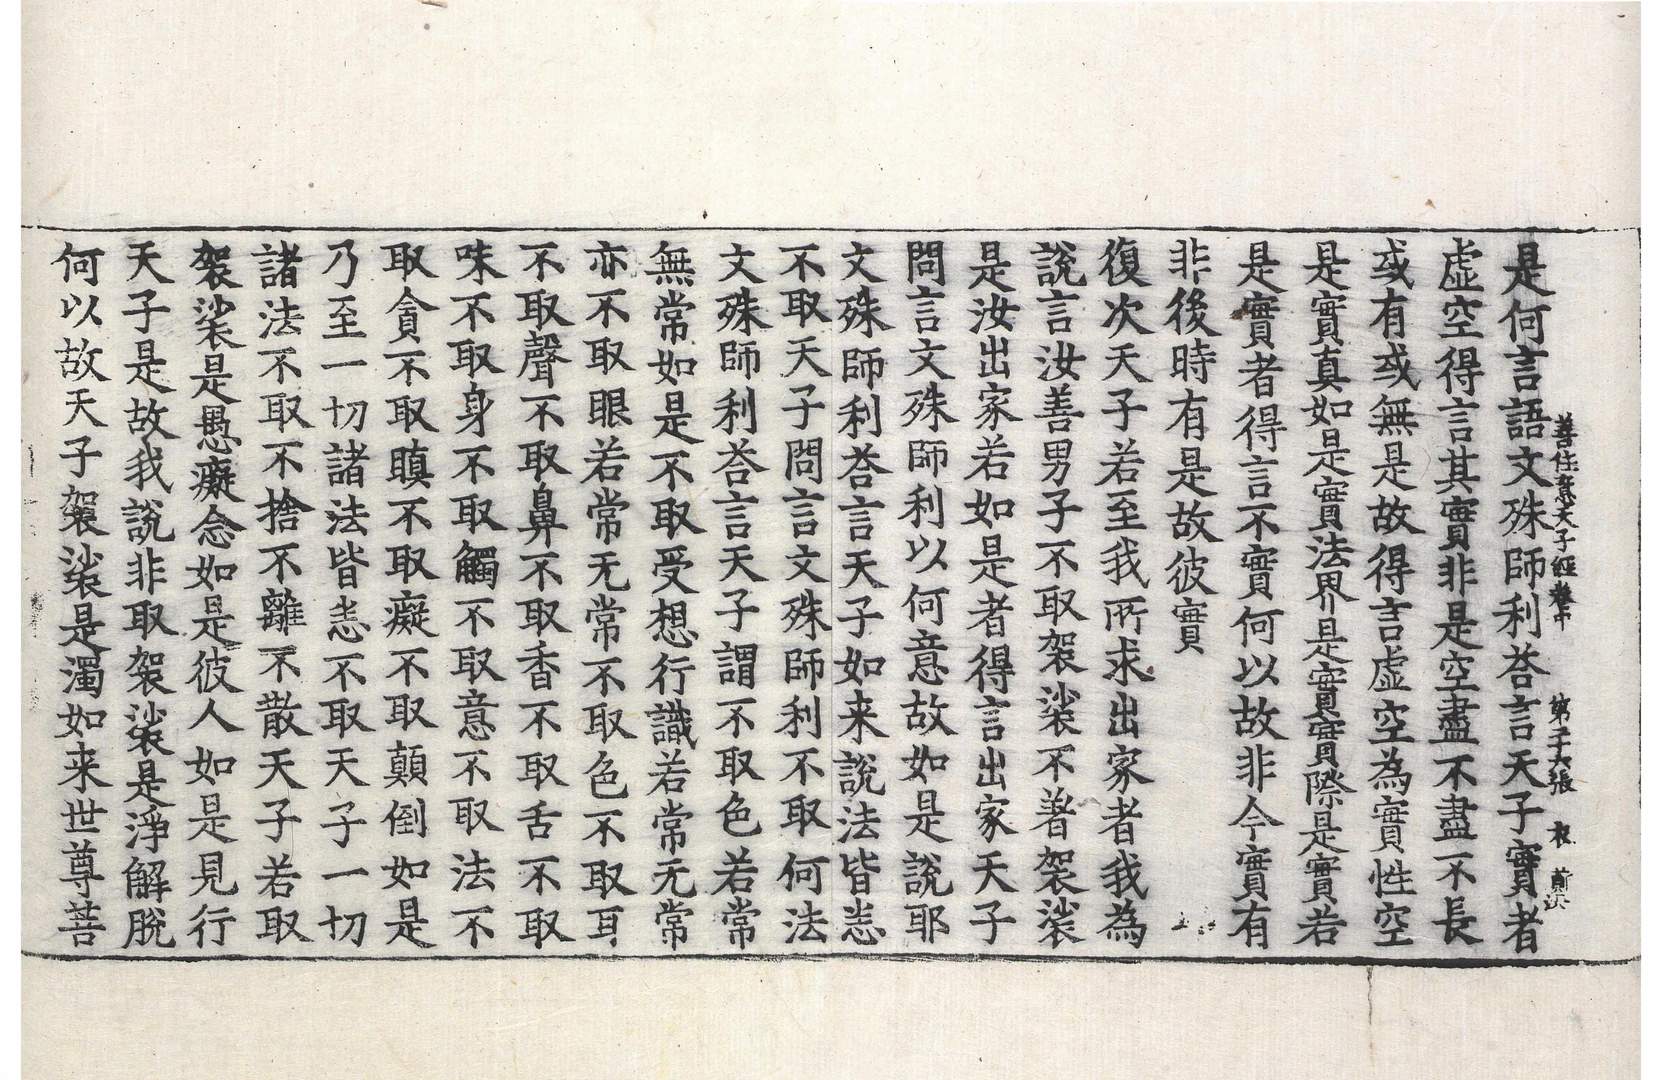 善住意天子經卷中 第子六張 衣
是何言語文殊師利荅言天子實者
虛空得言其實非是空盡不盡不長
或有或無是故得言虛空為實性空
是實真如是實法界是實實際是實若
是實者得言不實何以故非今實有
非後時有是故彼實
復次天子若至我所求出家者我為
說言汝善男子不取袈裟不著袈裟
是汝出家若如是者得言出家天子
問言文殊師利以何意故如是說耶
文殊師利荅言天子如来說法皆恙
不取天子問言文殊師利不取何法
文殊師利荅言天子謂不取色若常
無常如是不取受想行識若常无常
亦不取眼若常无常不取色不取耳
不取聲不取鼻不取香不取舌不取
味不取身不取觸不取意不取法不
取貪不取瞋不取癡不取顛倒如是
乃至一切諸法皆恙不取天子一切
諸法不取不捨不離不散天子若取
袈裟是愚癡念如是彼人如是見行
天子是故我說非取袈裟是淨解脫
何以故天子袈裟是濁如来世尊菩